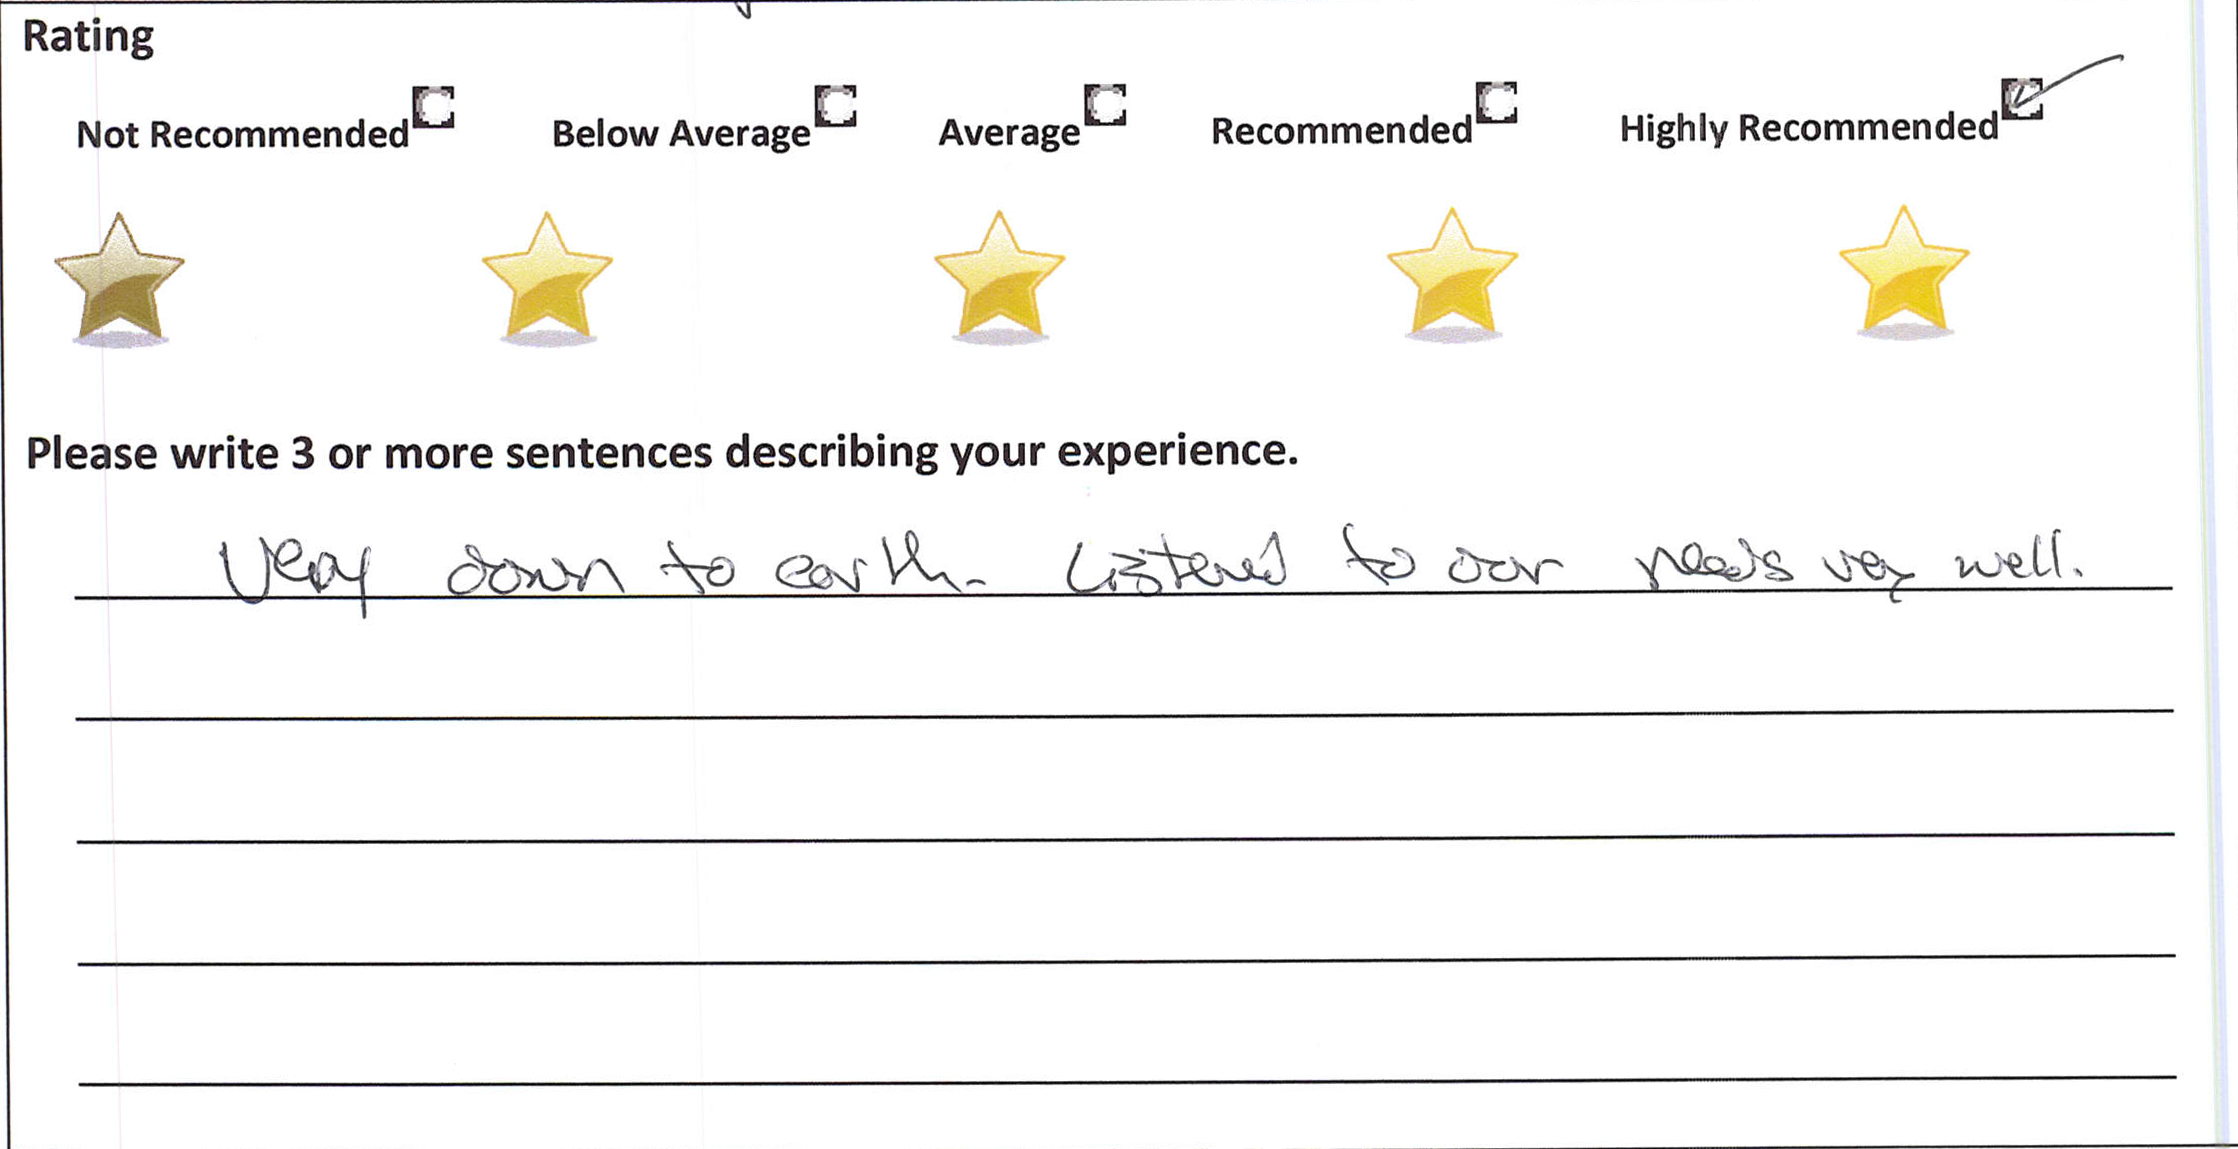 Rating
Not Recommended Below Average Average Recommended Highly Recommended
Please write 3 or more sentences describing your experience.
Very down to earth. Listened to our needs very well.